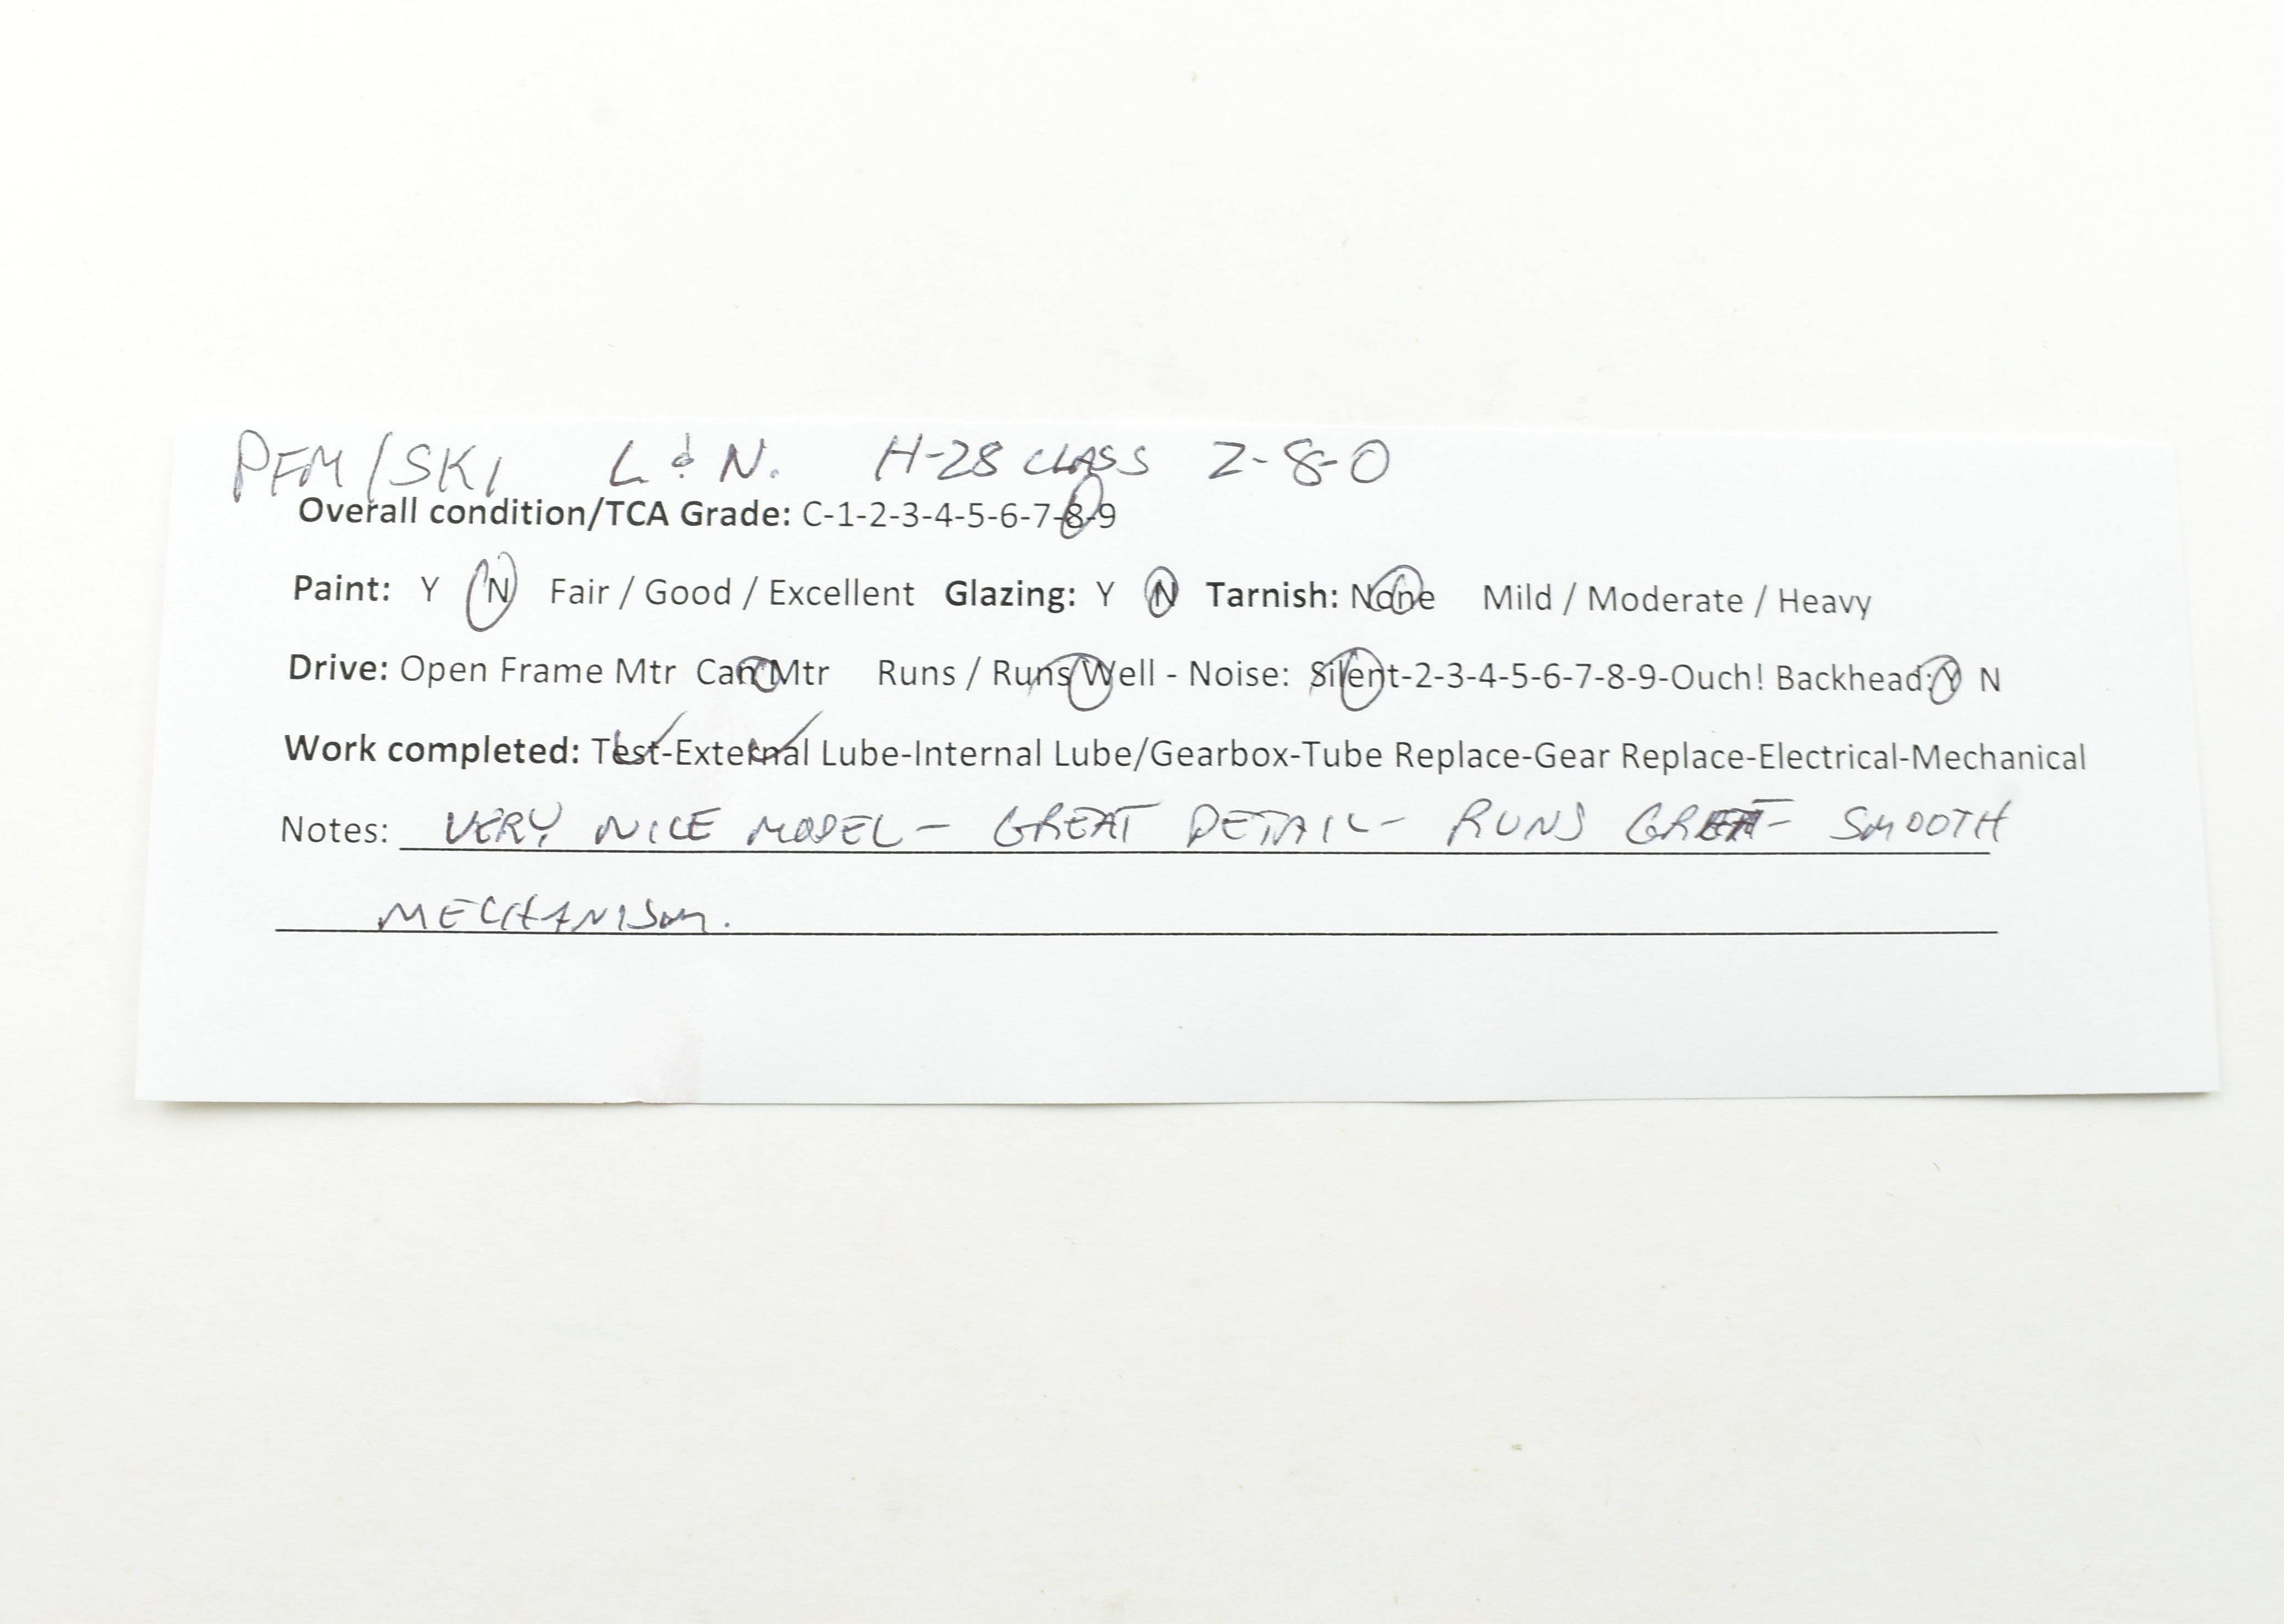 PFM/SKI L & N. H-28 CLASS 2-8-0
Overall condition/TCA Grade: C-1-2-3-4-5-6-7-8-9
Paint: Y N Fair / Good / Excellent Glazing: Y N Tarnish: None Mild / Moderate / Heavy
Drive: Open Frame Mtr Can Mtr Runs / Runs Well - Noise: Silent-2-3-4-5-6-7-8-9-Ouch! Backhead: Y N
Work completed: Test-External Lube-Internal Lube/Gearbox-Tube Replace-Gear Replace-Electrical-Mechanical
Notes: VERY NICE MODEL - GREAT DETAIL - RUNS GREAT - SMOOTH
MECHANISM.